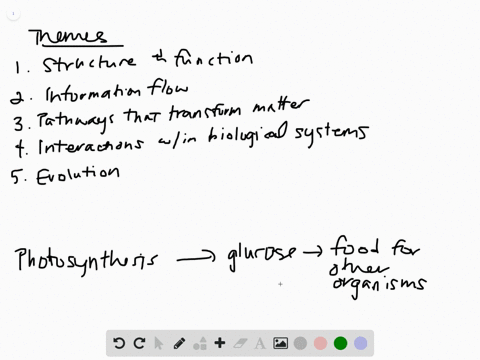 Themes
1. Structure + function
2. Information flow
3. Pathways that transform matter
4. Interactions w/in biological systems
5. Evolution
Photosynthesis → glucose → food for
other
organisms